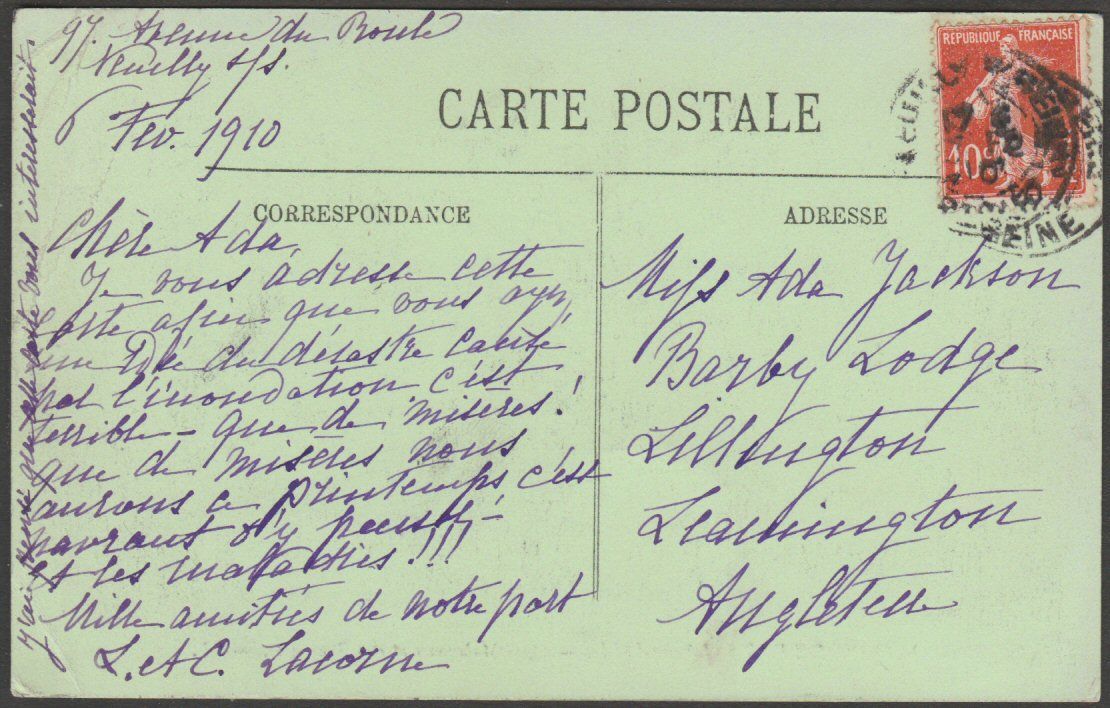 97. Avenue du Roule
Neuilly s/s.
6 Fev. 1910
CARTE POSTALE
REPUBLIQUE FRANÇAISE
10c
SEINE
CORRESPONDANCE
Chère Ada,
Je vous adresse cette
carte afin que vous ayez
une Idée du désastre causé
par l'inondation, c'est
terrible – que de misères!
que de misères nous
aurons ce printemps, c'est
navrant d'y penser –
et les maladies!!!
Mille amitiés de notre part
L. et C. Lacorne
J'ai pensé que cette carte vous interessait.
ADRESSE
Miss Ada Jackson
Barby Lodge
Lillington
Leamington
Angleterre